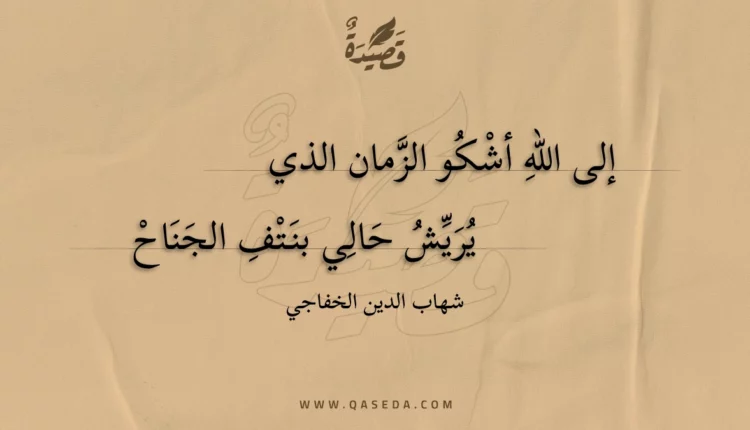 قَصِيْدَةٌ
إلى اللهِ أشْكُو الزَّمان الذي
يُرَيِّشُ حَالِي بنَتْفِ الجَنَاحْ
شهاب الدين الخفاجي
WWW.QASEDA.COM